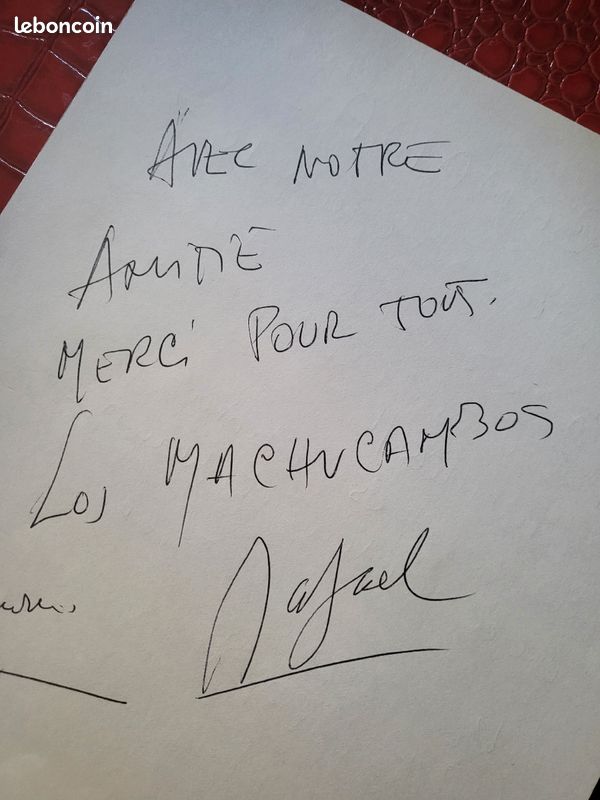 leboncoin
AVEC NOTRE
AMITIÉ
MERCI POUR TOUT.
LOS MACHUCAMBOS
Rafael